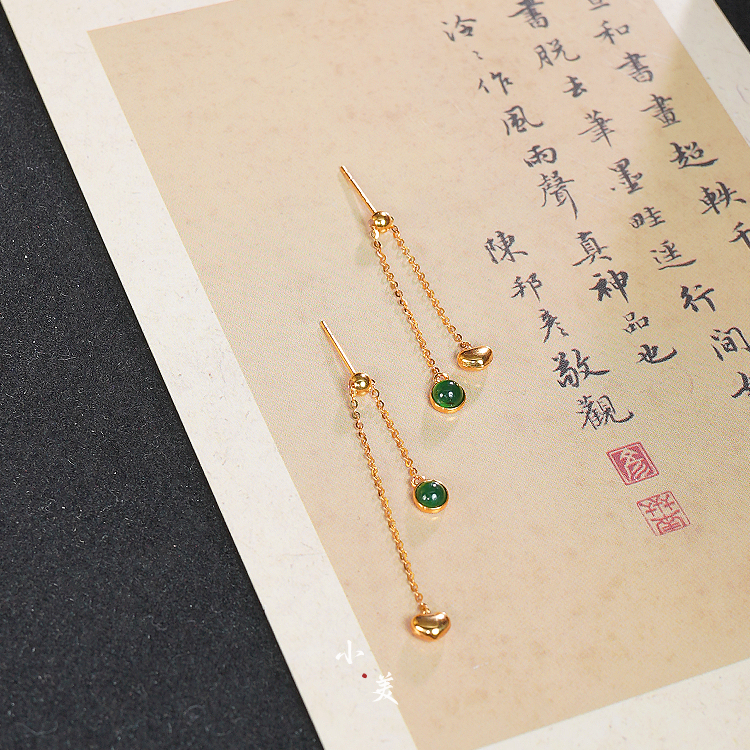 和書畫超軼千
書脫去筆墨畦逕行間
泠〻作風雨聲真神品也
陳邦彥敬觀
小美